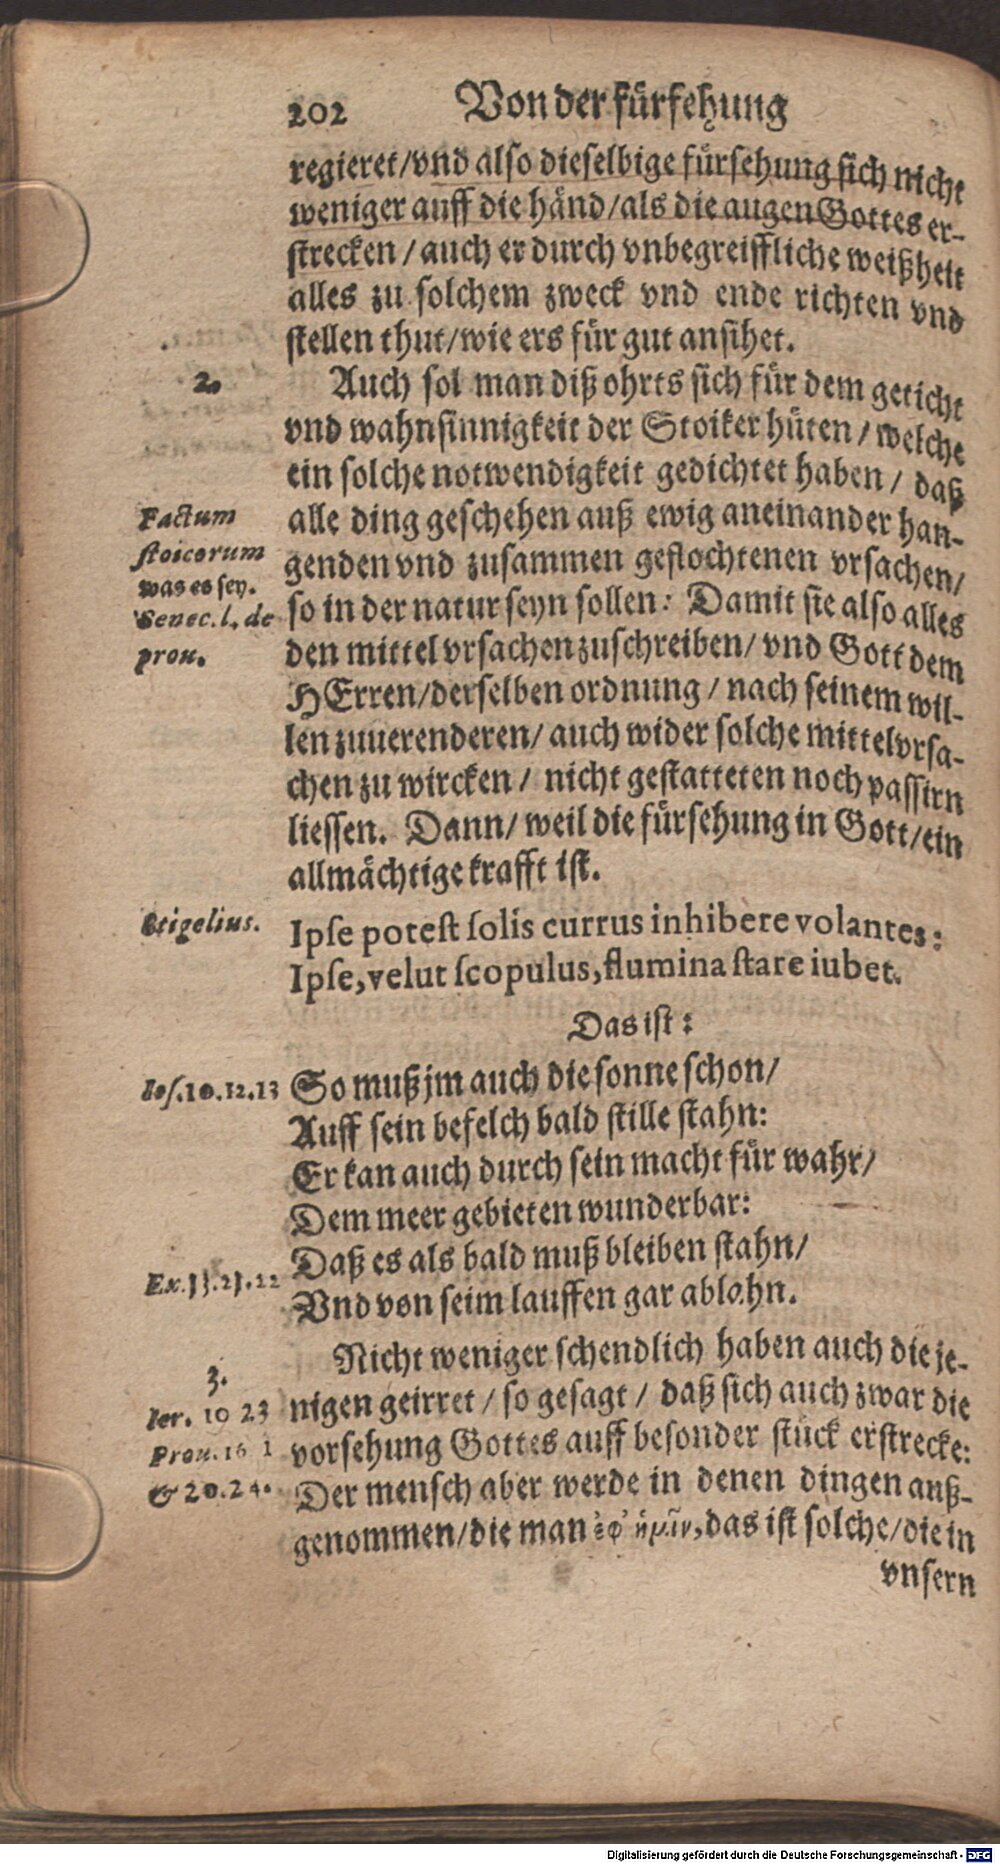 202 Von der fürsehung
regieret/vnd also dieselbige fürsehung sich nicht
weniger auff die händ/als die augen Gottes er-
strecken / auch er durch vnbegreiffliche weißheit
alles zu solchem zweck vnd ende richten vnd
stellen thut/wie ers für gut ansihet.
2.
Auch sol man diß ohrts sich für dem geticht
vnd wahnsinnigkeit der Stoiker hüten / welche
ein solche notwendigkeit gedichtet haben / daß
alle ding geschehen auß ewig aneinander han-
genden vnd zusammen geflochtenen vrsachen/
so in der natur seyn sollen: Damit sie also alles
den mittel vrsachen zuschreiben/ vnd Gott dem
HErren/derselben ordnung / nach seinem wil-
len zuuerenderen/ auch wider solche mittelvrsa-
chen zu wircken / nicht gestatteten noch passirn
liessen. Dann/ weil die fürsehung in Gott/ein
allmächtige krafft ist.
Factum
stoicorum
was es sey.
Senec. l. de
prou.
Stigelius.
Ipse potest solis currus inhibere volantes:
Ipse, velut scopulus, flumina stare iubet.
Das ist:
Ios. 10.12.13
So muß jm auch die sonne schon/
Auff sein befelch bald stille stahn:
Er kan auch durch sein macht für wahr/
Dem meer gebieten wunderbar:
Daß es als bald muß bleiben stahn/
Vnd von seim lauffen gar ablohn.
Ex. 21.22
3.
Nicht weniger schendlich haben auch die je-
nigen geirret / so gesagt / daß sich auch zwar die
vorsehung Gottes auff besonder stück erstrecke:
Der mensch aber werde in denen dingen auß-
genommen/die man ἐφ' ἡμῖν, das ist solche/die in
Ier. 10 23
Prou. 16 1
& 20.24.
vnsern
Digitalisierung gefördert durch die Deutsche Forschungsgemeinschaft - DFG